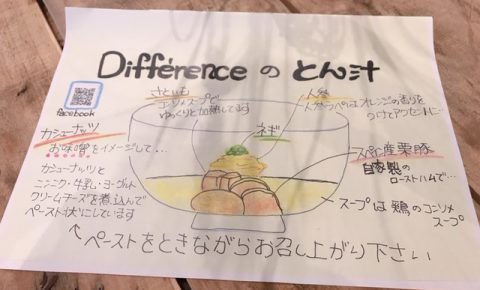 Différence の とん汁
facebook
さといも
コンソメスープで
ゆっくりと加熱してます
人参
人参ラペはオレンジの香りを
つけてアクセントに…
ネギ
カシューナッツ
お味噌をイメージして…
カシューナッツと
ニンニク・牛乳・ヨーグルト
クリームチーズを煮込んで
ペースト状にしています
スペイン産栗豚
自家製の
ローストハムで…
スープは鶏のコンソメ
スープ
ペーストをときながらお召し上がり下さい